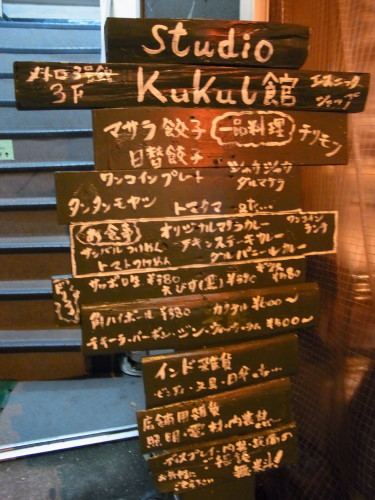 Studio
メトロ3号館
3F
Kukul館
エスニック
ショップ
マサラ餃子
一品料理
チリモン
日替餃子
ワンコインプレート
ジュウジュウ
ダルマサラ
タンタンモヤシ
トマタマ
お食事
オリジナルマサラカレー
ワンコイン
ランチ
サンバルつけめん
チキンステーキカレー
トマトつけめん
ダルパニールカレー
サッポロ生 ¥380
えびす(黒)
¥380
角ハイボール
カクテル ¥400～
テキーラ・バーボン・ジン・ウォッカ・ラム ¥400～
インド雑貨
店舗用雑貨
照明・電材・内装材
ディスプレイ・内装・設備の
ご相談
無料!
お気軽に